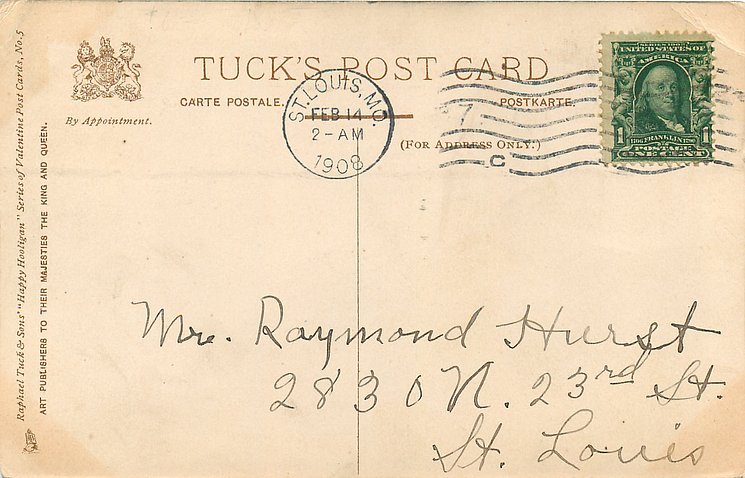 TUCK'S POST CARD
CARTE POSTALE.
POSTKARTE.
(FOR ADDRESS ONLY.)
By Appointment.
Raphael Tuck & Sons' "Happy Hooligan" Series of Valentine Post Cards, No. 5
ART PUBLISHERS TO THEIR MAJESTIES THE KING AND QUEEN.
ST. LOUIS, MO.
FEB 14
2-AM
1908
7
C
SERIES 1902
UNITED STATES OF
AMERICA
1706 FRANKLIN 1790
1 1
POSTAGE
ONE CENT
Mr. Raymond Hurst
2830 N. 23rd St.
St. Louis